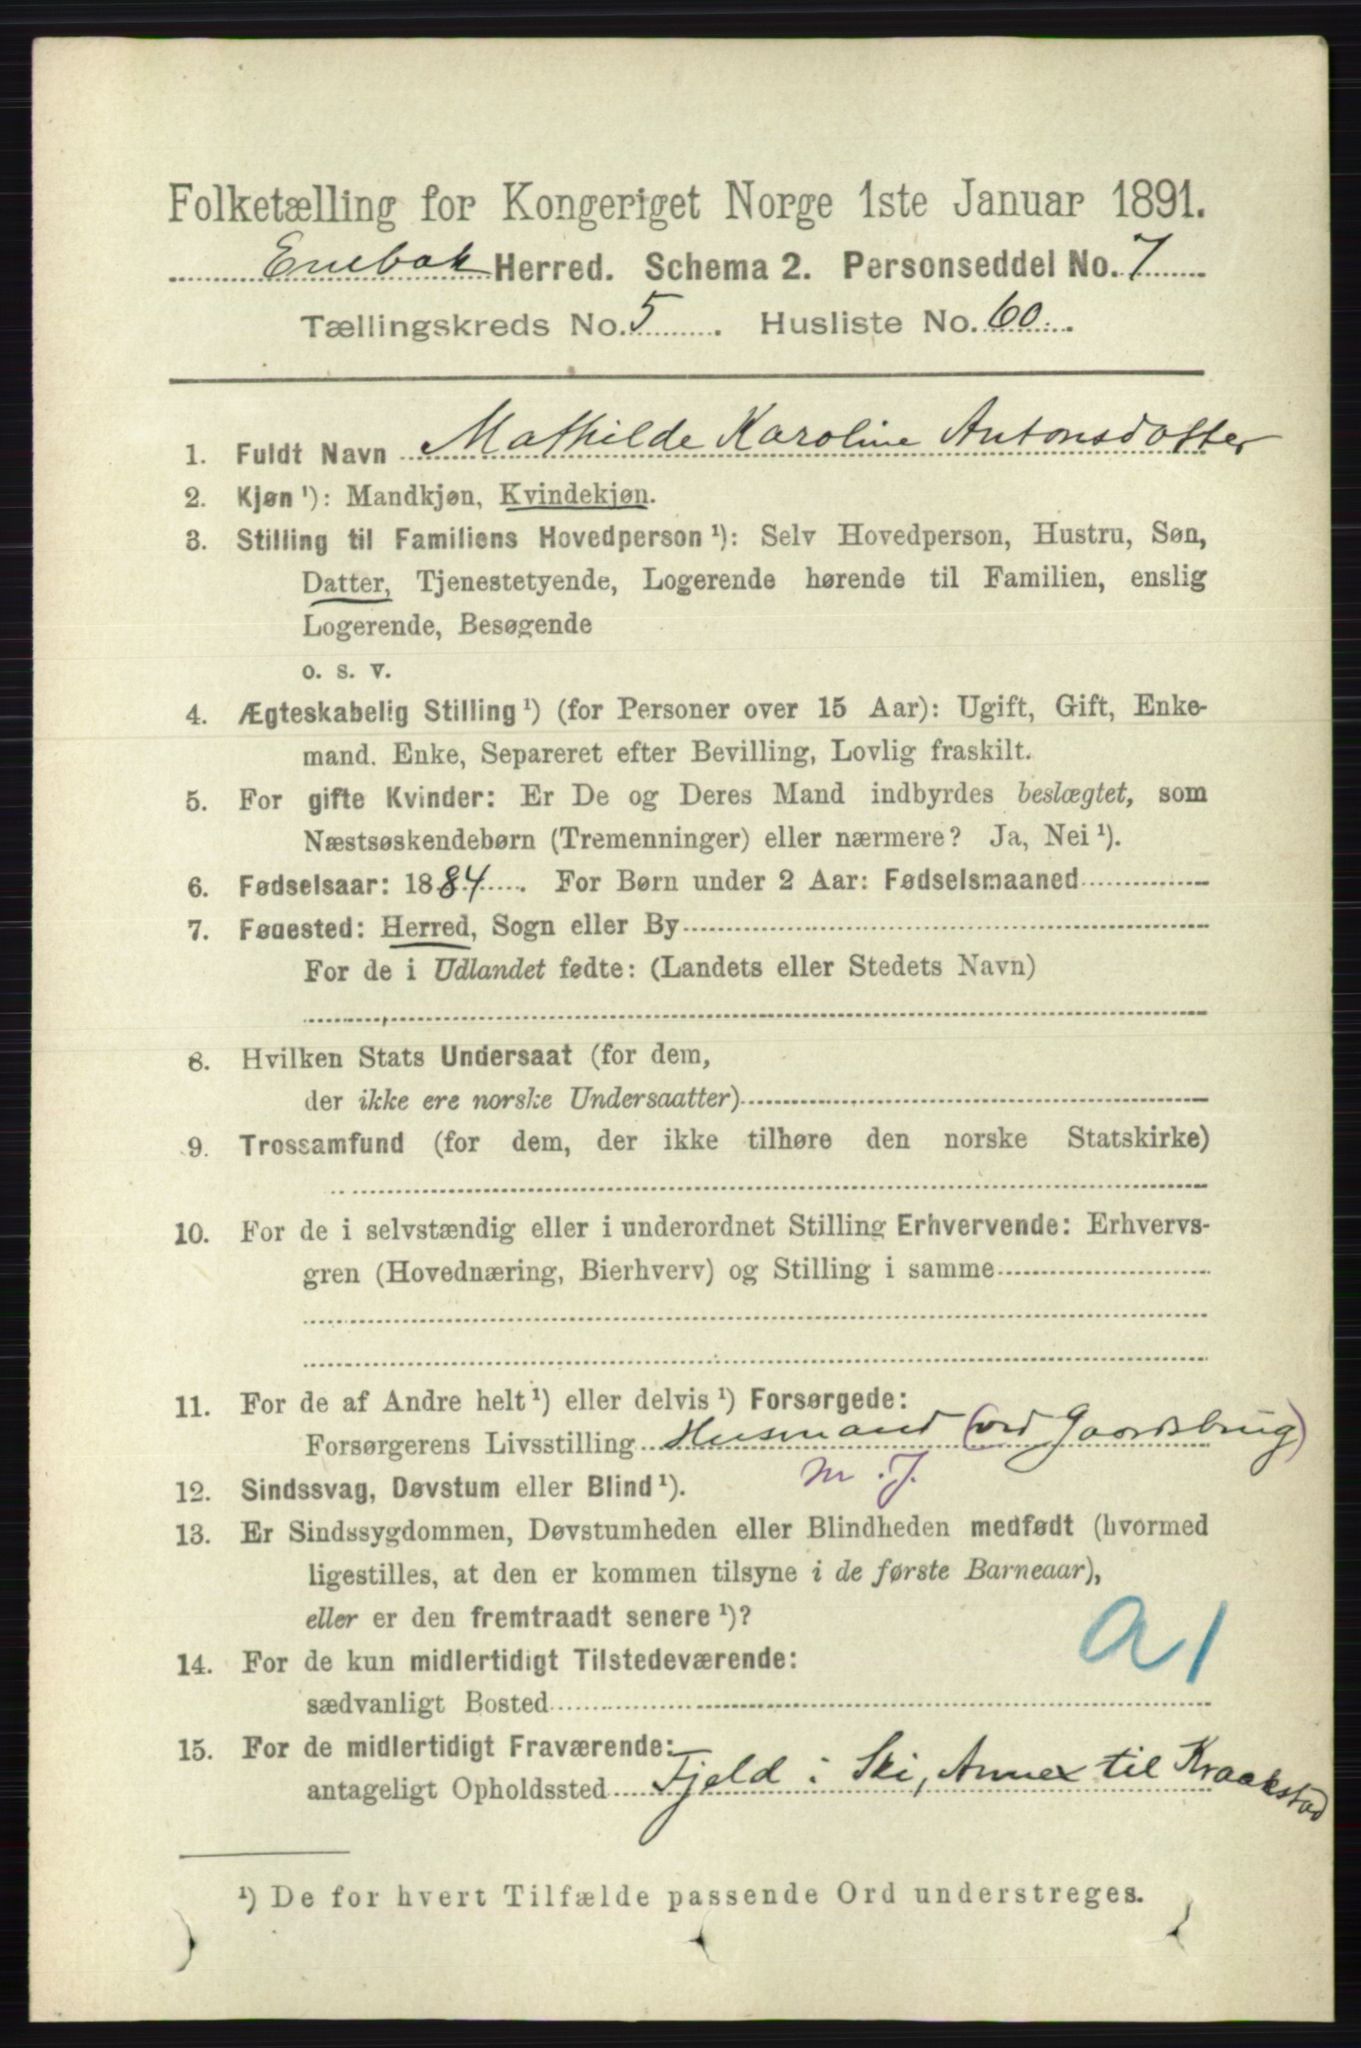 Folketælling for Kongeriget Norge 1ste Januar 1891.
Enebak Herred. Schema 2. Personseddel No. 7
Tællingskreds No. 5. Husliste No. 60.
1. Fuldt Navn Mathilde Karoline Antonsdatter
2. Kjøn ¹): Mandkjøn, Kvindekjøn.
3. Stilling til Familiens Hovedperson ¹): Selv Hovedperson, Hustru, Søn,
Datter, Tjenestetyende, Logerende hørende til Familien, enslig
Logerende, Besøgende
o. s. v.
4. Ægteskabelig Stilling ¹) (for Personer over 15 Aar): Ugift, Gift, Enke-
mand. Enke, Separeret efter Bevilling, Lovlig fraskilt.
5. For gifte Kvinder: Er De og Deres Mand indbyrdes beslægtet, som
Næstsøskendebørn (Tremenninger) eller nærmere? Ja, Nei ¹).
6. Fødselsaar: 1884. For Børn under 2 Aar: Fødselsmaaned
7. Fødested: Herred, Sogn eller By
For de i Udlandet fødte: (Landets eller Stedets Navn)
8. Hvilken Stats Undersaat (for dem,
der ikke ere norske Undersaatter)
9. Trossamfund (for dem, der ikke tilhøre den norske Statskirke)
10. For de i selvstændig eller i underordnet Stilling Erhvervende: Erhvervs-
gren (Hovednæring, Bierhverv) og Stilling i samme
11. For de af Andre helt ¹) eller delvis ¹) Forsørgede:
Forsørgerens Livsstilling Husmand (ved Gaardsbrug)
m. J.
12. Sindssvag, Døvstum eller Blind ¹).
13. Er Sindssygdommen, Døvstumheden eller Blindheden medfødt (hvormed
ligestilles, at den er kommen tilsyne i de første Barneaar),
eller er den fremtraadt senere ¹)?
a 1
14. For de kun midlertidigt Tilstedeværende:
sædvanligt Bosted
15. For de midlertidigt Fraværende:
antageligt Opholdssted Fjeld i Ski, Annex til Kraakstad
¹) De for hvert Tilfælde passende Ord understreges.